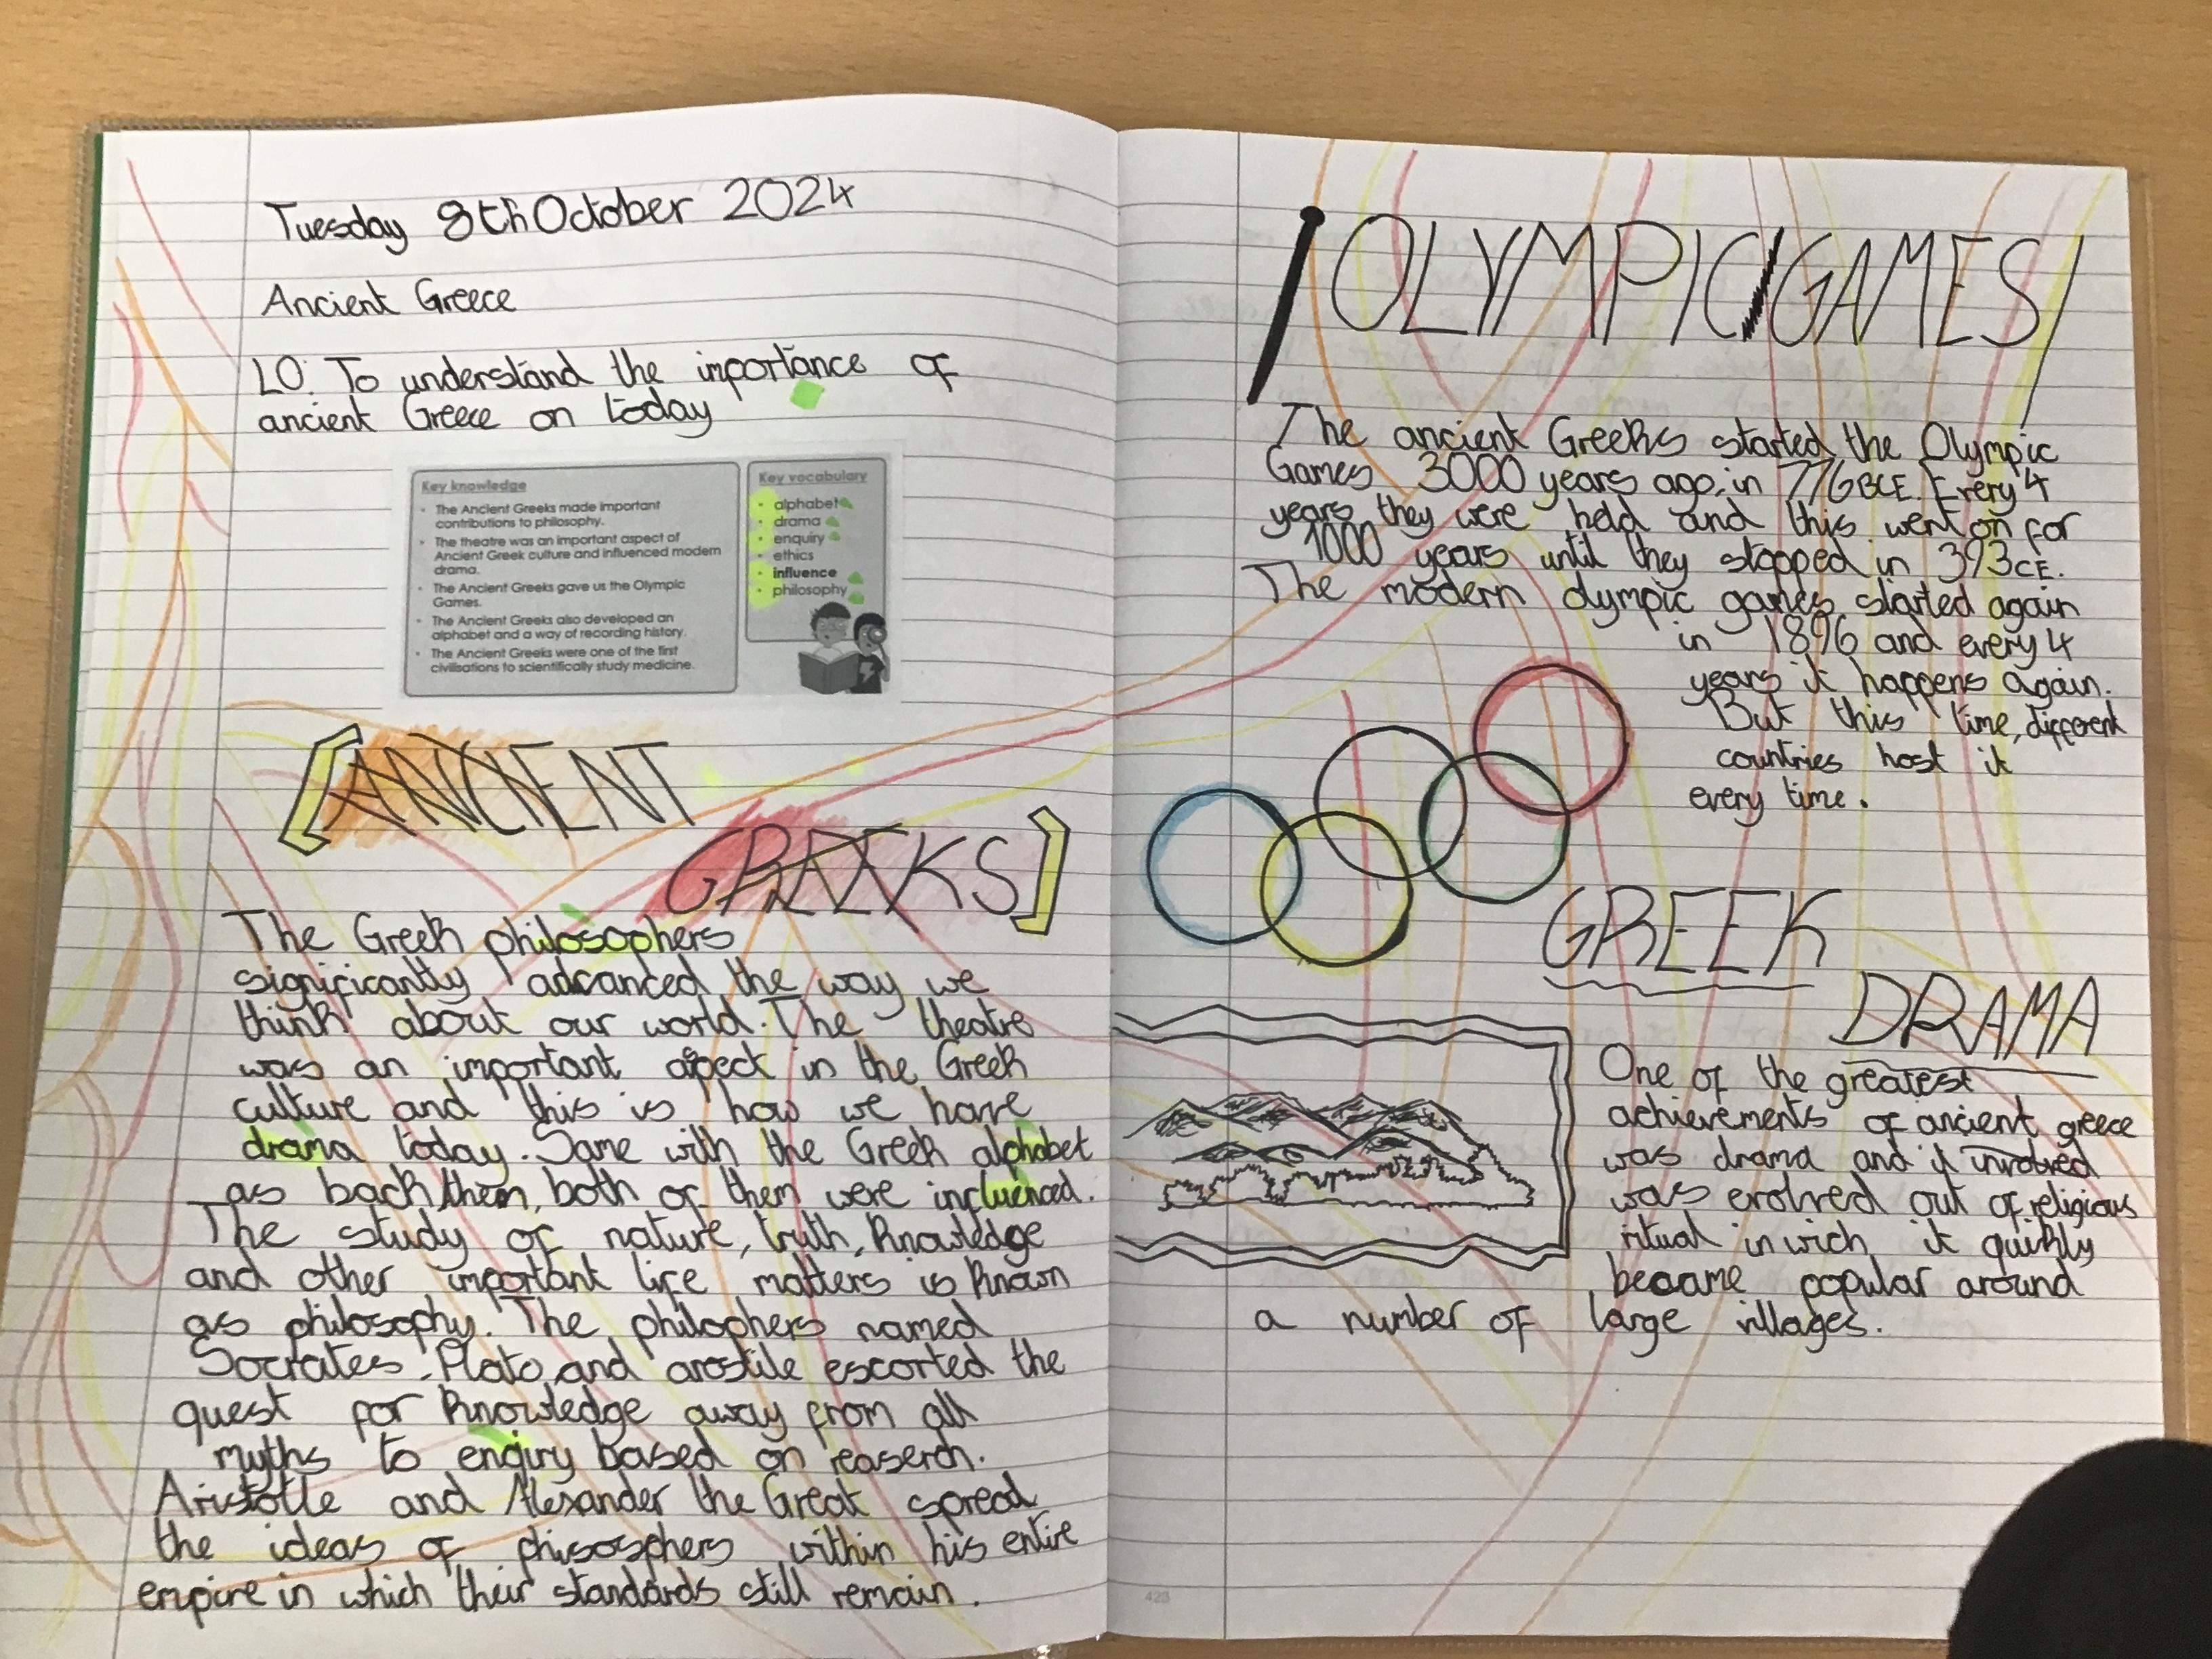 Tuesday 8th October 2024
Ancient Greece
LO: To understand the importance of
ancient Greece on today
Key knowledge
• The Ancient Greeks made important
contributions to philosophy.
• The theatre was an important aspect of
Ancient Greek culture and influenced modern
drama.
• The Ancient Greeks gave us the Olympic
Games.
• The Ancient Greeks also developed an
alphabet and a way of recording history.
• The Ancient Greeks were one of the first
civilisations to scientifically study medicine.
Key vocabulary
• alphabet
• drama
• enquiry
• ethics
• influence
• philosophy
[ANCIENT
GREEKS]
The Greek philosophers
significantly advanced the way we
think about our world. The theatre
was an important aspect in the Greek
culture and this is how we have
drama today. Same with the Greek alphabet
as back then, both of them were influenced.
The study of nature, truth, knowledge
and other important life matters is known
as philosophy. The philophers named
Socrates, Plato, and arostile escorted the
quest for knowledge away from all
myths to enqiry based on reaserch.
Aristotle and Alexander the Great spread
the ideas of phisosphers within his entire
empire in which their standards still remain.
OLYMPIC GAMES
The ancient Greeks started the Olympic
Games 3000 years ago, in 776 BCE. Every 4
years they were held and this went on for
1000 years until they stopped in 393 CE.
The modern olympic games started again
in 1896 and every 4
years it happens again.
But this time, different
countries host it
every time.
GREEK
DRAMA
One of the greatest
achievements of ancient greece
was drama and it involved
was evolved out of religious
ritual in wich it quikly
became popular around
a number of large villages.
423